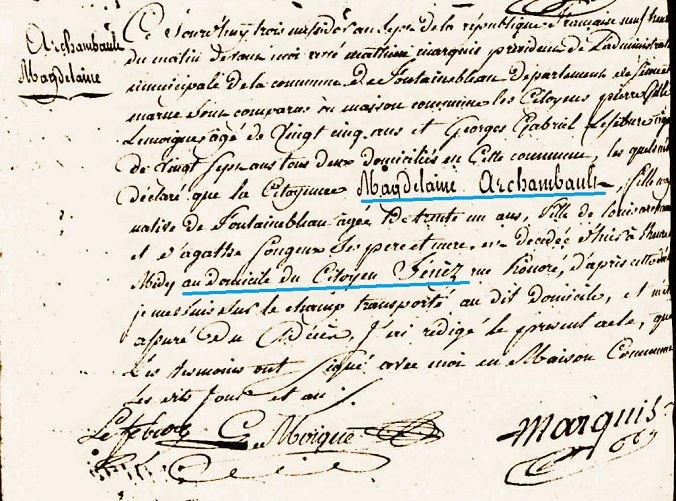 Archambault
Magdelaine
Ce jourd'huy trois messidor an sept de la republique française neuf heures
du matin devant moi René mathieu marquis président de L'administrat
municipale de la commune De Fontainebleau Departement de Seine et
marne sont comparus en maison commune les Citoyens pierre
Lemoigne, agé de Vingt cinq ans et Georges Gabriel Lefebure agé
de Vingt Sept ans tous deux domiciliés en Cette commune, les quels m'ont
déclaré que la Citoyenne Magdelaine Archambault, fille
native de Fontainebleau agée De trente un ans, fille de louis archam
et d'agathe fougeux Ses pere et mere, est decedée d'hier à l'heure
Midy au domicile du Citoyen Feriez rue honoré, d'après cette
je me suis sur le champ transporté au dit domicile, et m'étant
assuré du Décès, J'ai redigé le present acte, que
Les temoins ont signé avec moi en Maison Commune
les dits jour et an
Lefebure G Le Moigne marquis